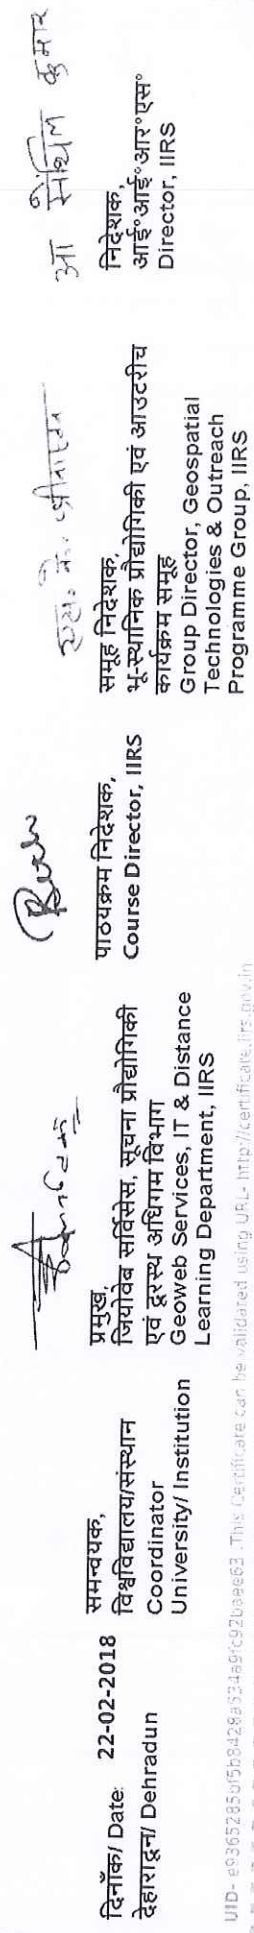 दिनाँक/ Date: 22-02-2018
देहारादून/ Dehradun
समन्वयक,
विश्वविद्यालय/संस्थान
Coordinator
University/ Institution
प्रमुख,
जियोवेब सर्विसेस, सूचना प्रौद्योगिकी
एवं दूरस्थ अधिगम विभाग
Geoweb Services, IT & Distance
Learning Department, IIRS
पाठयक्रम निदेशक,
Course Director, IIRS
एस. के. श्रीवास्तव
समूह निदेशक,
भू-स्थानिक प्रौद्योगिकी एवं आउटरीच
कार्यक्रम समूह
Group Director, Geospatial
Technologies & Outreach
Programme Group, IIRS
आ सेंथिल कुमार
निदेशक,
आई॰आई॰आर॰एस॰
Director, IIRS
This Certificate can be validated using URL- http://certificate.iirs.gov.in